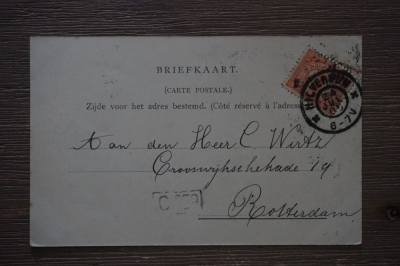 BRIEFKAART.
(CARTE POSTALE.)
Zijde voor het adres bestemd. (Côté réservé à l'adresse
HILVERSUM
6-7V
Aan den Heer C. Wirtz
Crooswijkschekade 14
Rotterdam